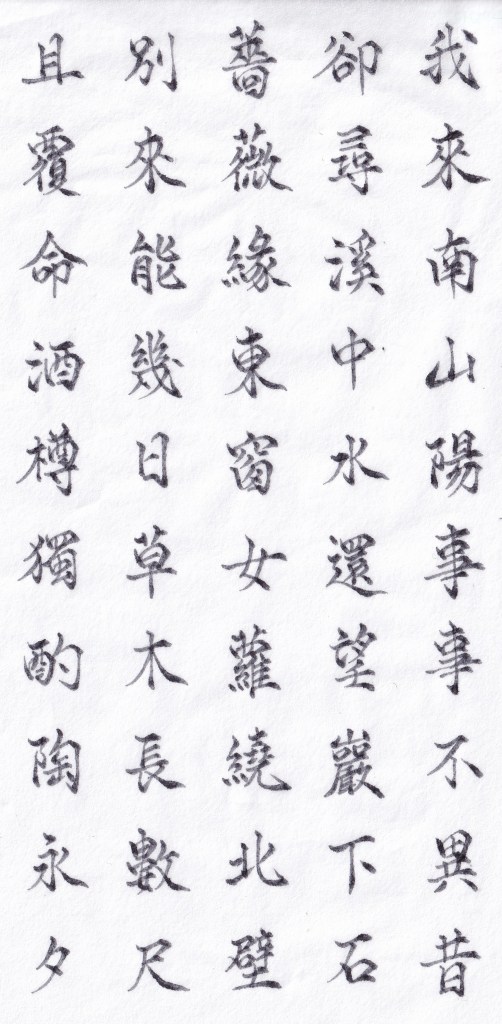 我來南山陽事事不異昔
卻尋溪中水還望巖下石
薔薇緣東窗女蘿繞北壁
別來能幾日草木長數尺
且覆命酒樽獨酌陶永夕